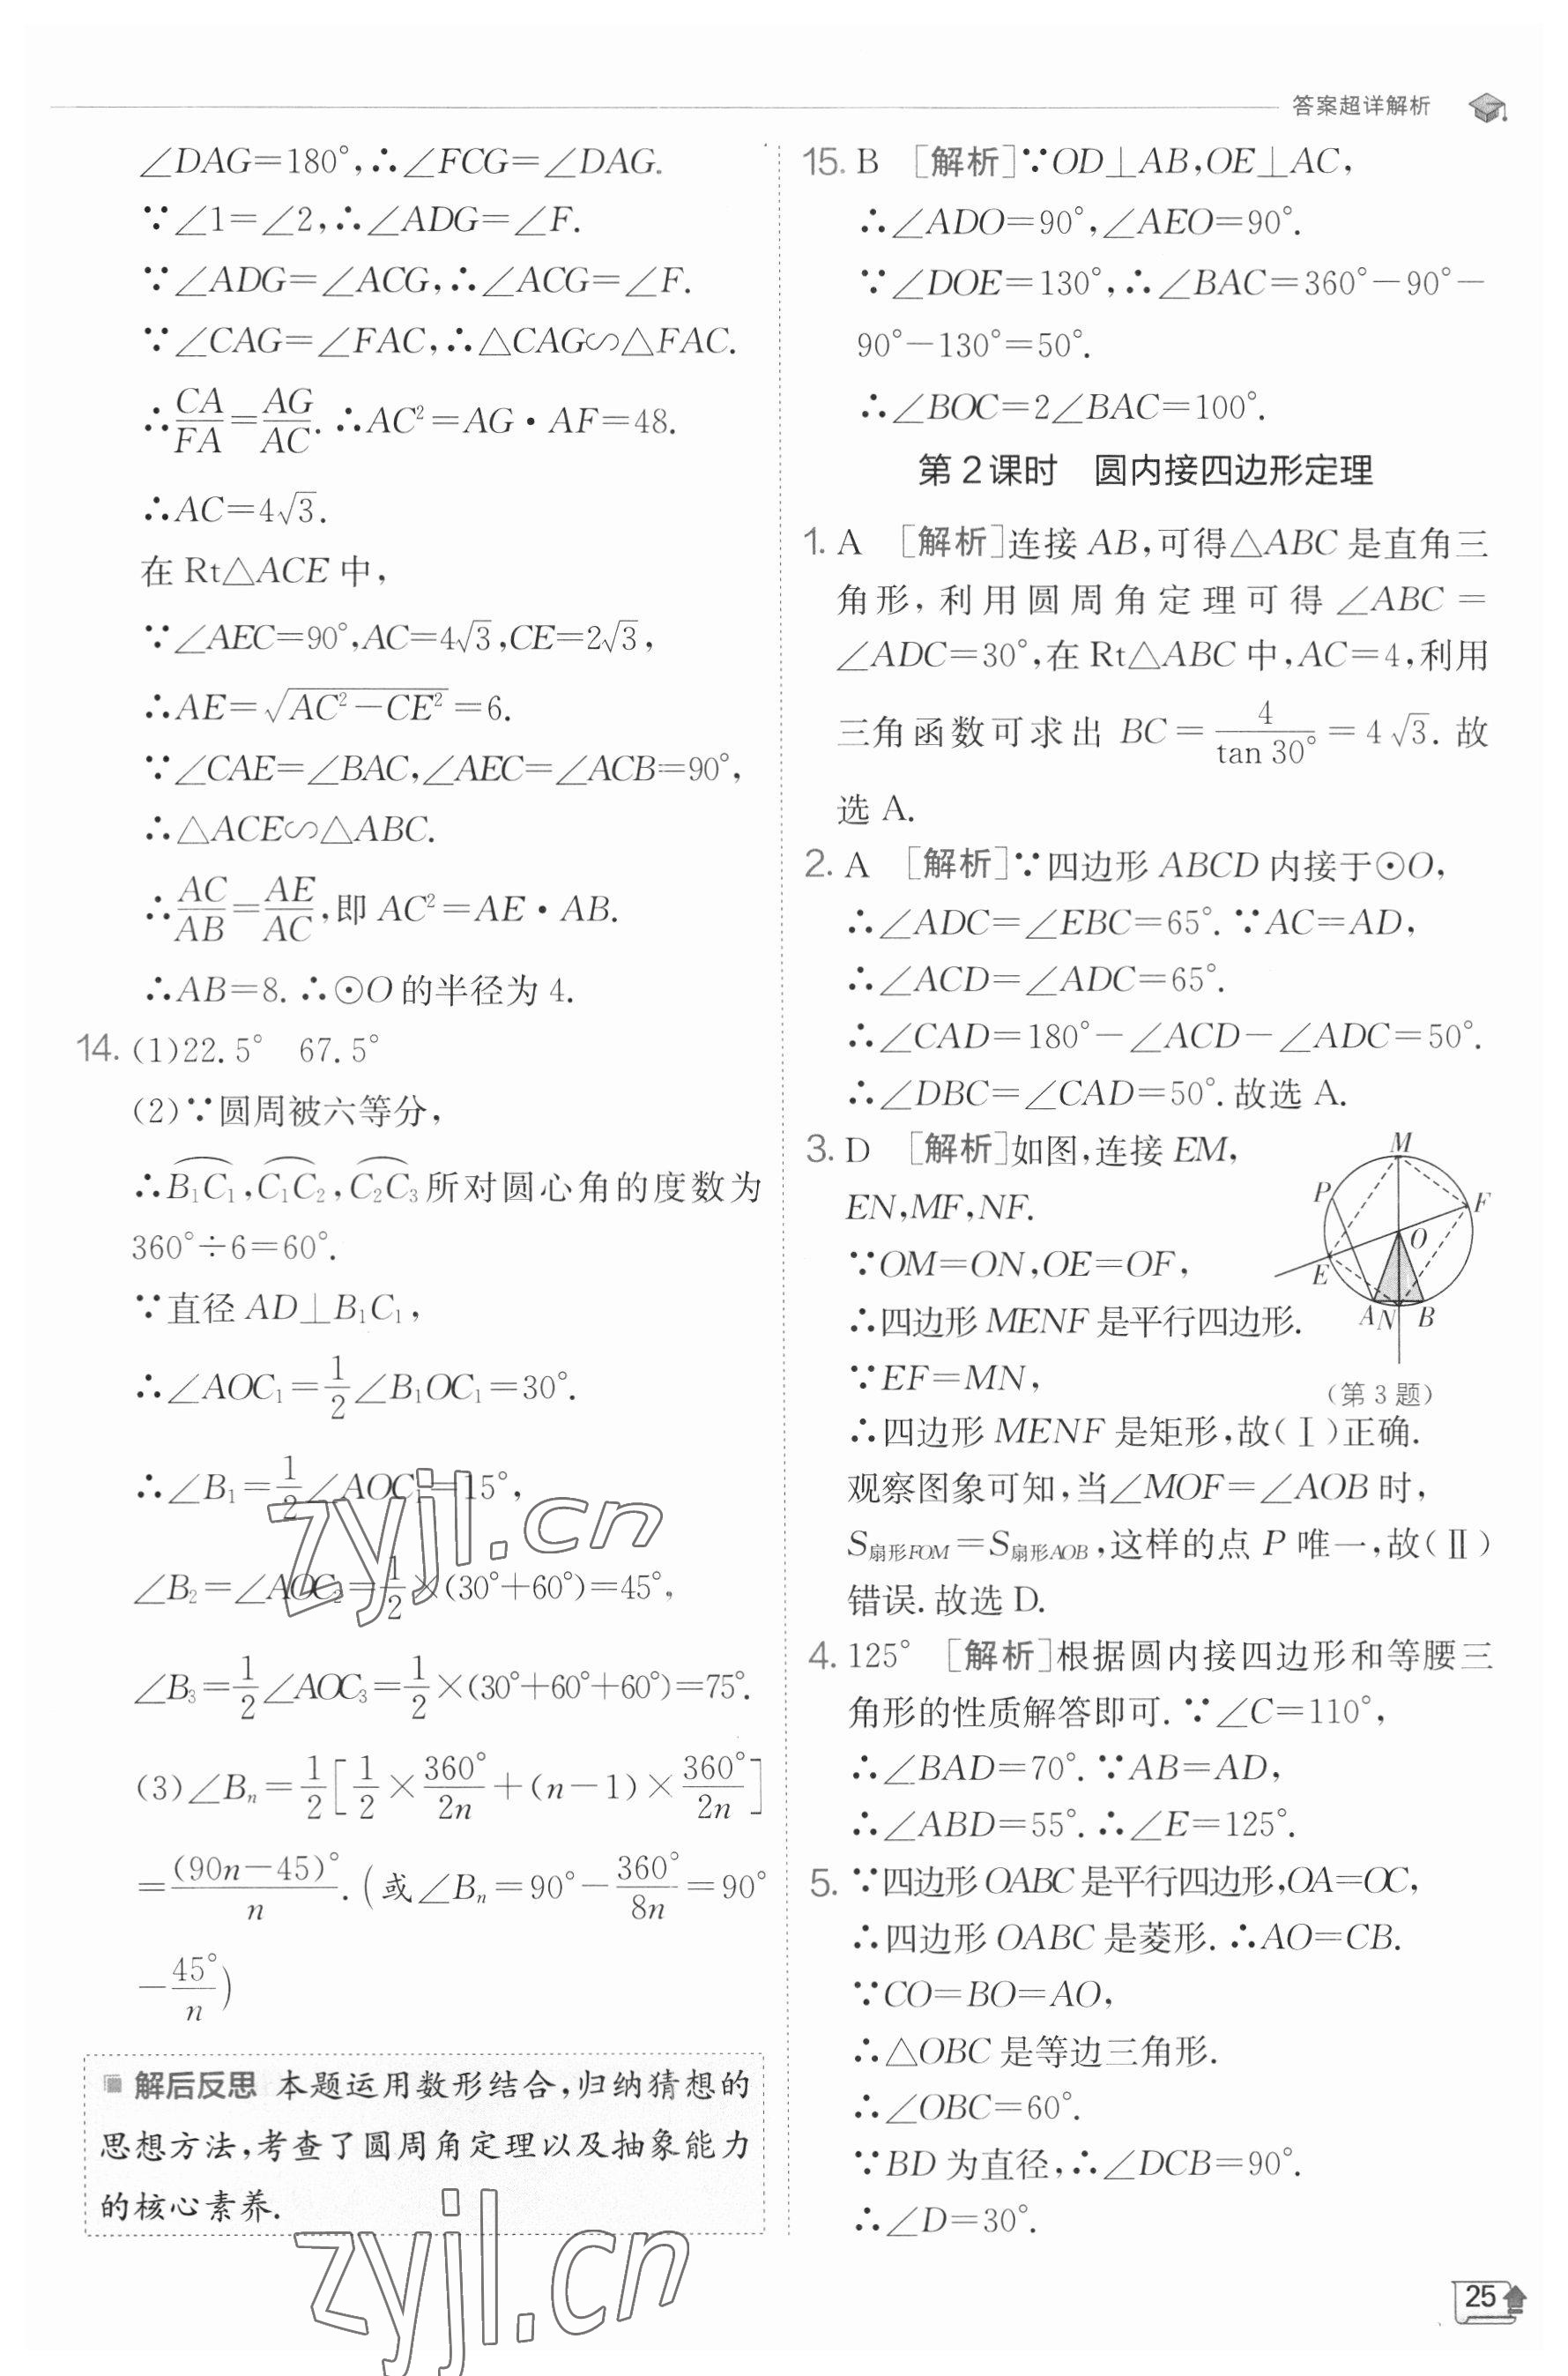 答案超详解析
∠DAG=180°,∴∠FCG=∠DAG.
∵∠1=∠2,∴∠ADG=∠F.
∵∠ADG=∠ACG,∴∠ACG=∠F.
∵∠CAG=∠FAC,∴△CAG∽△FAC.
∴CA/FA=AG/AC.∴AC²=AG·AF=48.
∴AC=4√3.
在 Rt△ACE 中,
∵∠AEC=90°,AC=4√3,CE=2√3,
∴AE=√(AC²-CE²)=6.
∵∠CAE=∠BAC,∠AEC=∠ACB=90°,
∴△ACE∽△ABC.
∴AC/AB=AE/AC,即 AC²=AE·AB.
∴AB=8.∴⊙O 的半径为 4.
14. (1)22.5° 67.5°
(2)∵圆周被六等分,
∴B₁C₁⌒,C₁C₂⌒,C₂C₃⌒所对圆心角的度数为
360°÷6=60°.
∵直径 AD⊥B₁C₁,
∴∠AOC₁=1/2∠B₁OC₁=30°.
∴∠B₁=1/2∠AOC₁=15°,
∠B₂=∠AOC₂=1/2×(30°+60°)=45°,
∠B₃=1/2∠AOC₃=1/2×(30°+60°+60°)=75°.
(3)∠Bₙ=1/2[1/2×360°/2n+(n-1)×360°/2n]
=(90n-45)°/n.(或∠Bₙ=90°-360°/8n=90°
-45°/n)
解后反思 本题运用数形结合,归纳猜想的
思想方法,考查了圆周角定理以及抽象能力
的核心素养.
15. B [解析]∵OD⊥AB,OE⊥AC,
∴∠ADO=90°,∠AEO=90°.
∵∠DOE=130°,∴∠BAC=360°-90°-
90°-130°=50°.
∴∠BOC=2∠BAC=100°.
第2课时 圆内接四边形定理
1. A [解析]连接 AB,可得△ABC 是直角三
角形,利用圆周角定理可得∠ABC=
∠ADC=30°,在 Rt△ABC 中,AC=4,利用
三角函数可求出 BC=4/tan 30°=4√3.故
选 A.
2. A [解析]∵四边形 ABCD 内接于⊙O,
∴∠ADC=∠EBC=65°.∵AC=AD,
∴∠ACD=∠ADC=65°.
∴∠CAD=180°-∠ACD-∠ADC=50°.
∴∠DBC=∠CAD=50°.故选 A.
3. D [解析]如图,连接 EM,
EN,MF,NF.
∵OM=ON,OE=OF,
∴四边形 MENF 是平行四边形.
∵EF=MN,
M
P
F
O
E
A N B
(第3题)
∴四边形 MENF 是矩形,故(Ⅰ)正确.
观察图象可知,当∠MOF=∠AOB 时,
S扇形FOM=S扇形AOB,这样的点 P 唯一,故(Ⅱ)
错误.故选 D.
4. 125° [解析]根据圆内接四边形和等腰三
角形的性质解答即可.∵∠C=110°,
∴∠BAD=70°.∵AB=AD,
∴∠ABD=55°.∴∠E=125°.
5. ∵四边形 OABC 是平行四边形,OA=OC,
∴四边形 OABC 是菱形.∴AO=CB.
∵CO=BO=AO,
∴△OBC 是等边三角形.
∴∠OBC=60°.
∵BD 为直径,∴∠DCB=90°.
∴∠D=30°.
zyjl.cn
zyjl.cn
25